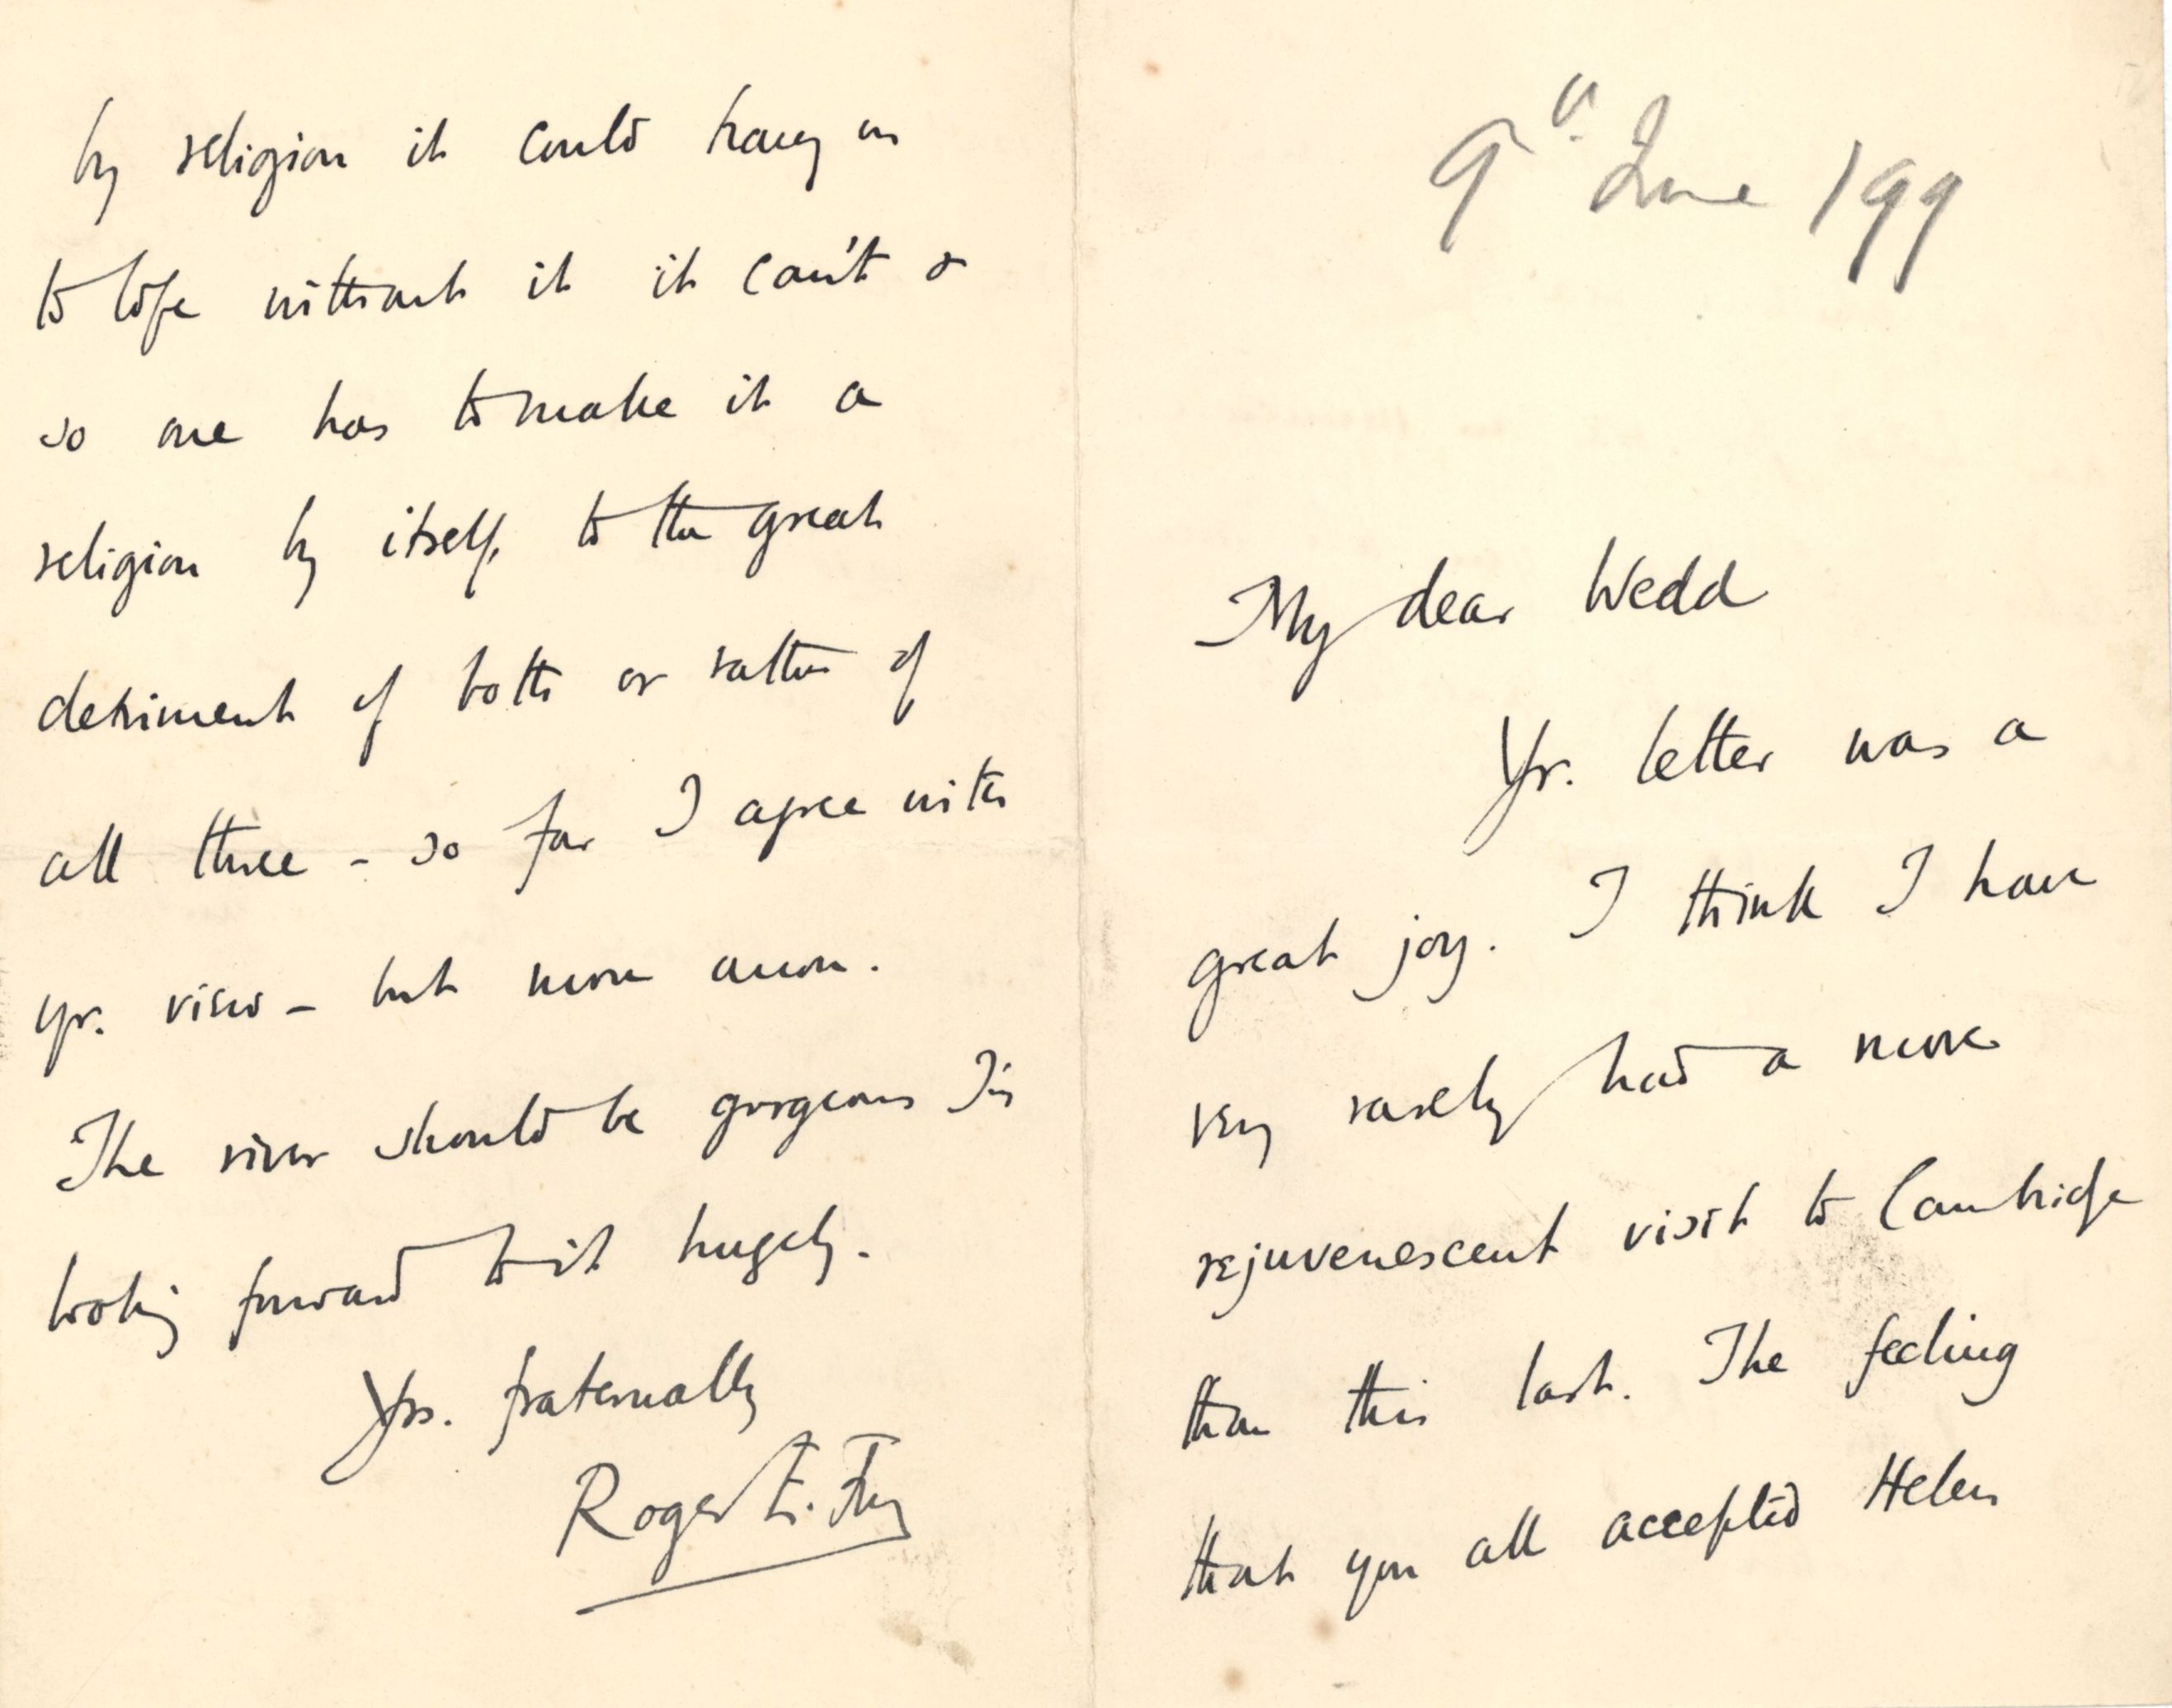 9th June /99
My dear Wedd
Yr. letter was a
great joy. I think I have
very rarely had a more
rejuvenescent visit to Cambridge
than this last. The feeling
that you all accepted Helen
by religion it could hang on
to life without it it can't &
so one has to make it a
religion by itself, to the great
detriment of both or rather of
all three - so far I agree with
yr. view - but more anon.
The river should be gorgeous I'm
looking forward to it hugely.
Yrs. fraternally
Roger E. Fry